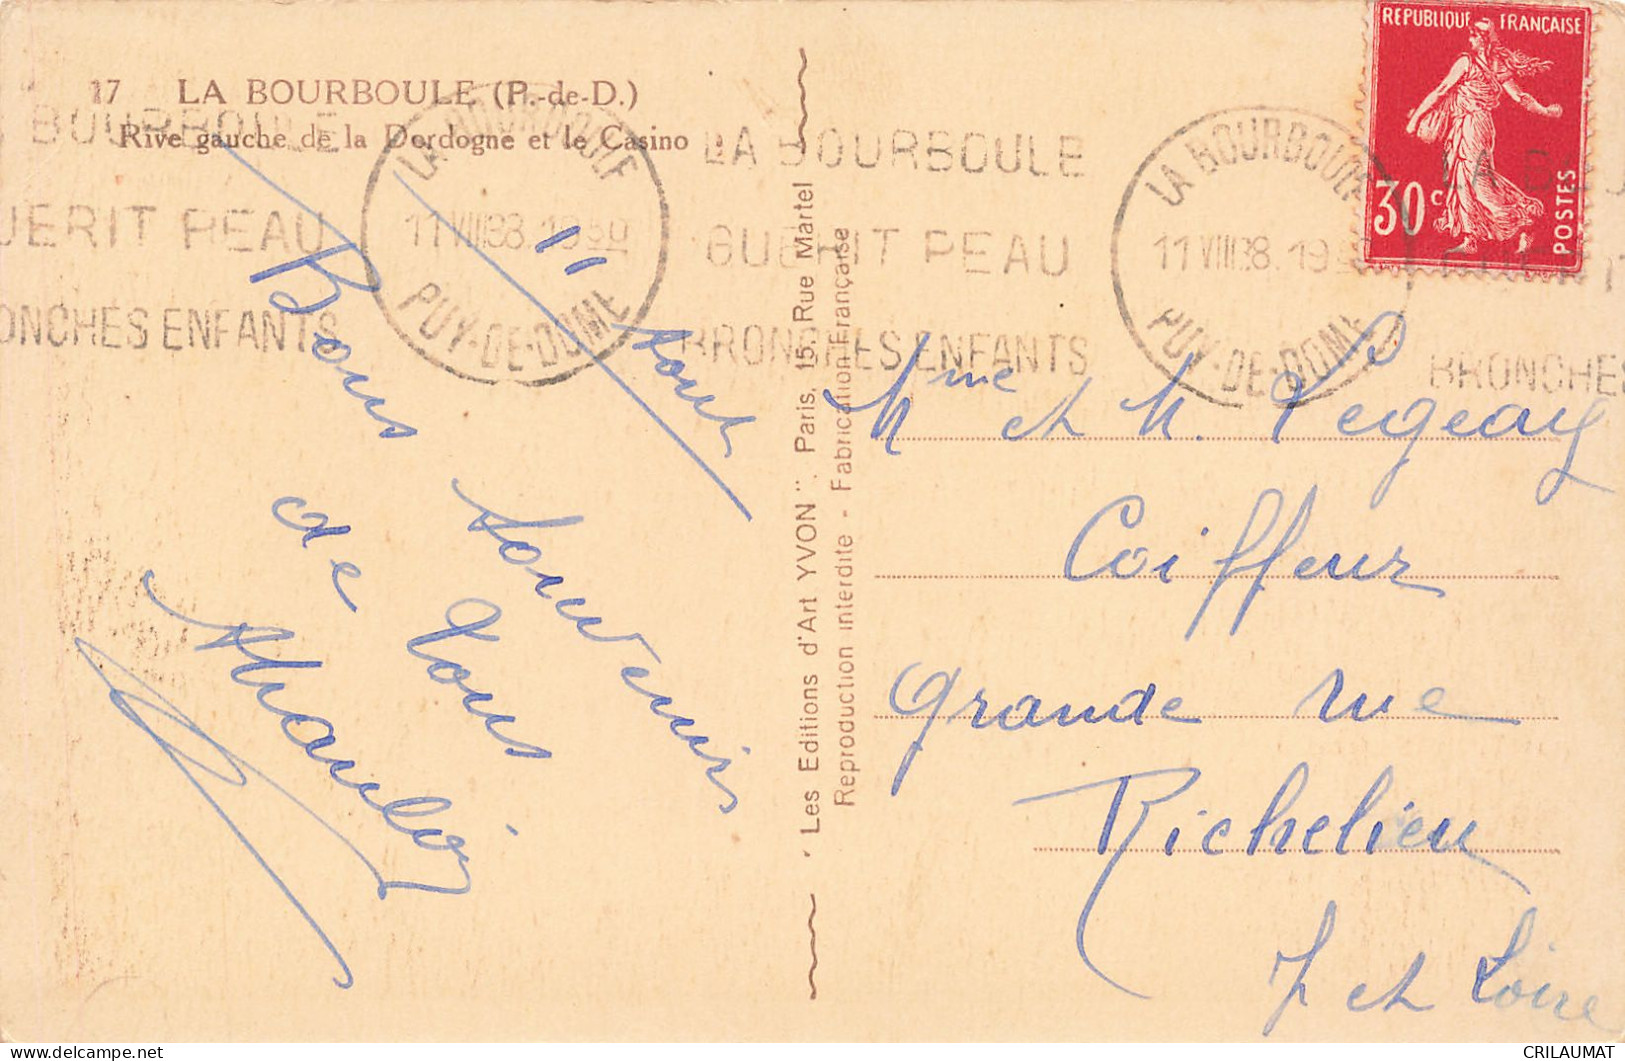 17 LA BOURBOULE (P.-de-D.)
Rive gauche de la Dordogne et le Casino
BOURBOULE
GUERIT PEAU
BRONCHES ENFANTS
LA BOURBOULE
11 VIII 38. 19
PUY-DE-DOME
LA BOURBOULE
GUERIT PEAU
BRONCHES ENFANTS
LA BOURBOULE
11 VIII 38. 19
PUY-DE-DOME
BRONCHES
REPUBLIQUE FRANÇAISE
30c
POSTES
11 Aout
Bons souvenirs
de tous
Les Editions d'Art YVON". Paris, 15, Rue Martel
Reproduction interdite - Fabrication Française
Mme et M. Pegeay
Coiffeur
Grande rue
Richelieu
I et Loire
CRILAUMAT